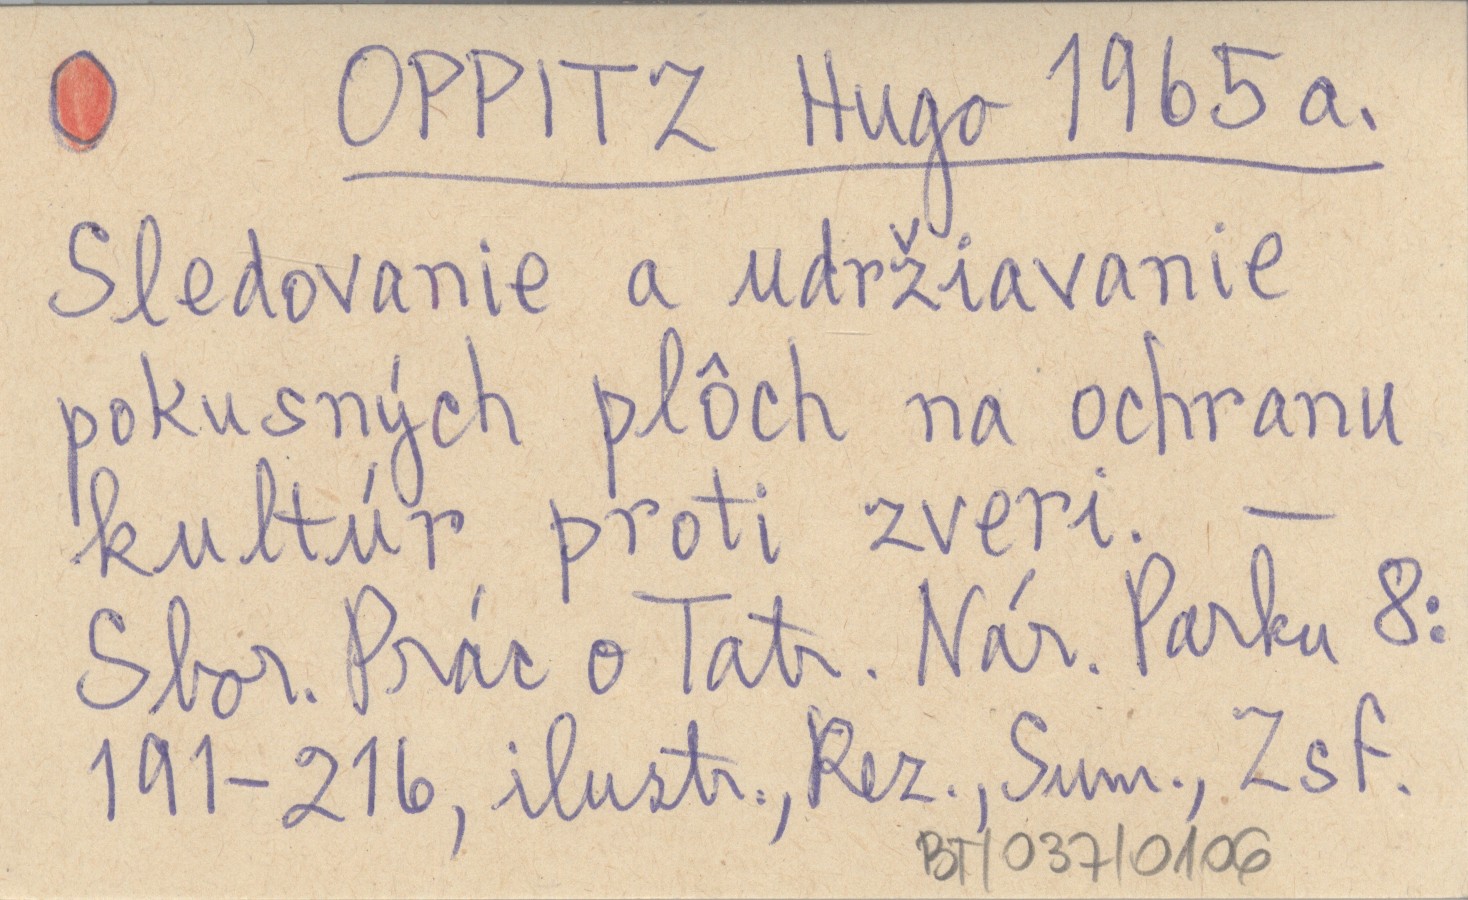 OPPITZ Hugo 1965 a.
Sledovanie a udržiavanie
pokusných plôch na ochranu
kultúr proti zveri. —
Sbor. Prác o Tatr. Nár. Parku 8:
191-216, ilustr., Rez., Sum., Zsf.
BT/037/0106